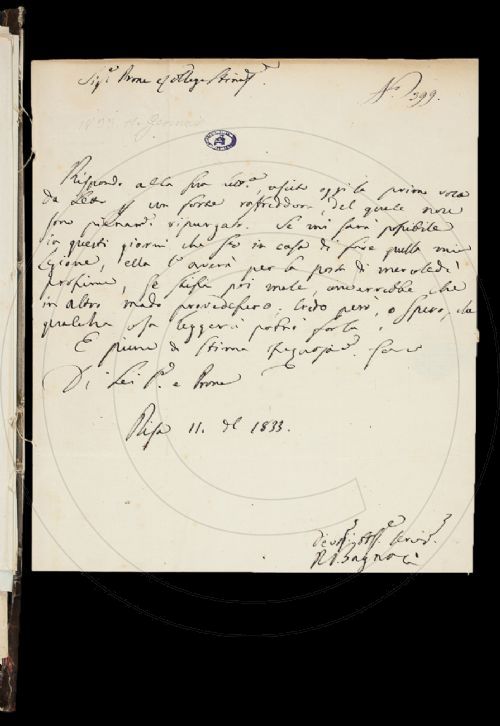 Sig.r Prone e Collega Stimat.e
N.o 399.
11 di Gennaio
Rispondo alla sua, uscito oggi la prima volta
da letto p un forte raffreddore, del quale non
sono pienamente ripurgato. Se mi sarà possibile
in questi giorni che sto in casa di far quella mia
lezione, ella l'averà per la posta di mercoledì
prossimo; se stessi poi male, converrebbe che
in altro modo provvedessero. Credo però, o spero, che
qualche cosa leggera potrò farla.
E pieno di stima
Di Lei S.r e Prone
Pisa 11. del 1833.